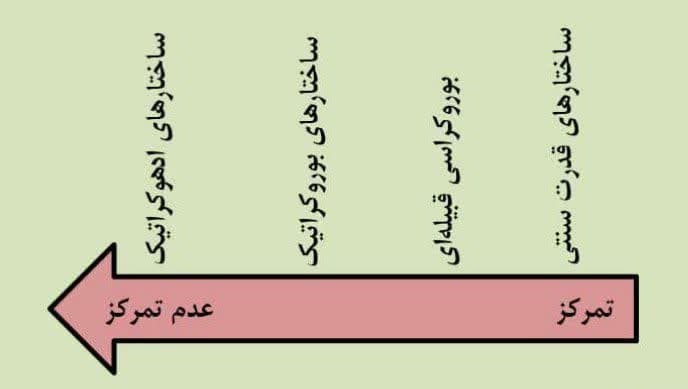 ساختارهای قدرت سنتی
بوروکراسی قبیله‌ای
ساختارهای بوروکراتیک
ساختارهای ادهوکراتیک
تمرکز
عدم تمرکز